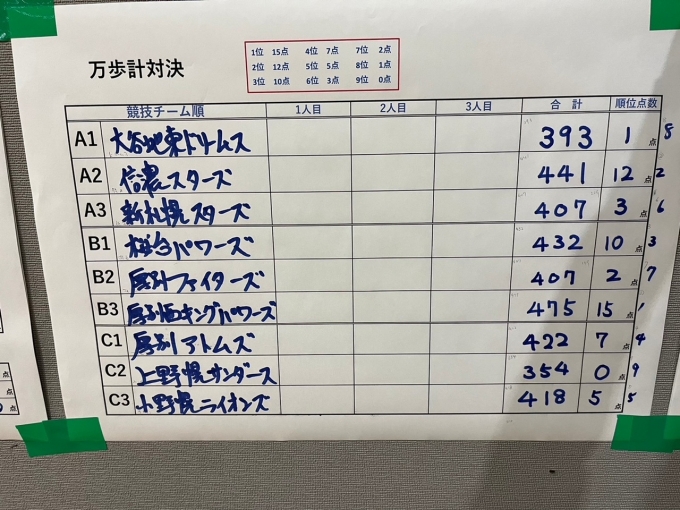 万歩計対決
1位 15点 4位 7点 7位 2点
2位 12点 5位 5点 8位 1点
3位 10点 6位 3点 9位 0点
競技チーム順 1人目 2人目 3人目 合計 順位点数
A1 大谷地東ドリームス 393 1点 8
A2 信濃スターズ 441 12点 2
A3 新札幌スターズ 407 3点 6
B1 桜台パワーズ 432 10点 3
B2 厚別ファイターズ 407 2点 7
B3 厚別西キングパワーズ 475 15点 1
C1 厚別アトムズ 422 7点 4
C2 上野幌サンダース 354 0点 9
C3 小野幌ライオンズ 418 5点 5
点
点
点